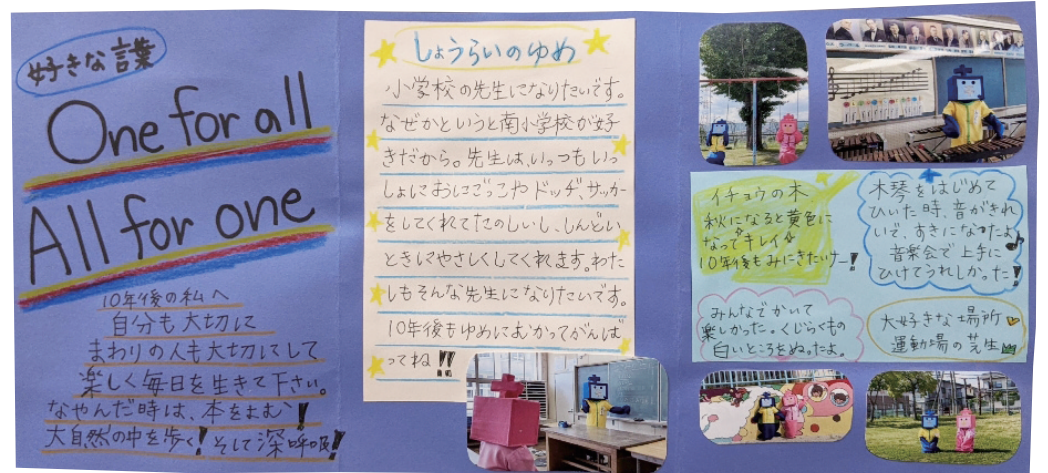 好きな言葉
One for all
All for one
10年後の私へ
自分も大切に
まわりの人も大切にして
楽しく毎日を生きて下さい。
なやんだ時は、本をよむ!
大自然の中を歩く!そして深呼吸!
しょうらいのゆめ
小学校の先生になりたいです。
なぜかというと南小学校が好
きだから。先生は、いっつもいっ
しょにおにごっこやドッヂ、サッカー
をしてくれてたのしいし、しんどい
ときにやさしくしてくれます。わた
しもそんな先生になりたいです。
10年後もゆめにむかってがんば
ってね!!
イチョウの木
秋になると黄色に
なってキレイ☆
10年後もみにきたいナー!
木琴をはじめて
ひいた時、音がきれ
いで、すきになったよ♪
音楽会で上手に
ひけてうれしかった!
みんなでかいて
楽しかった。くじらぐもの
白いところをぬったよ。
大好きな場所
運動場の芝生